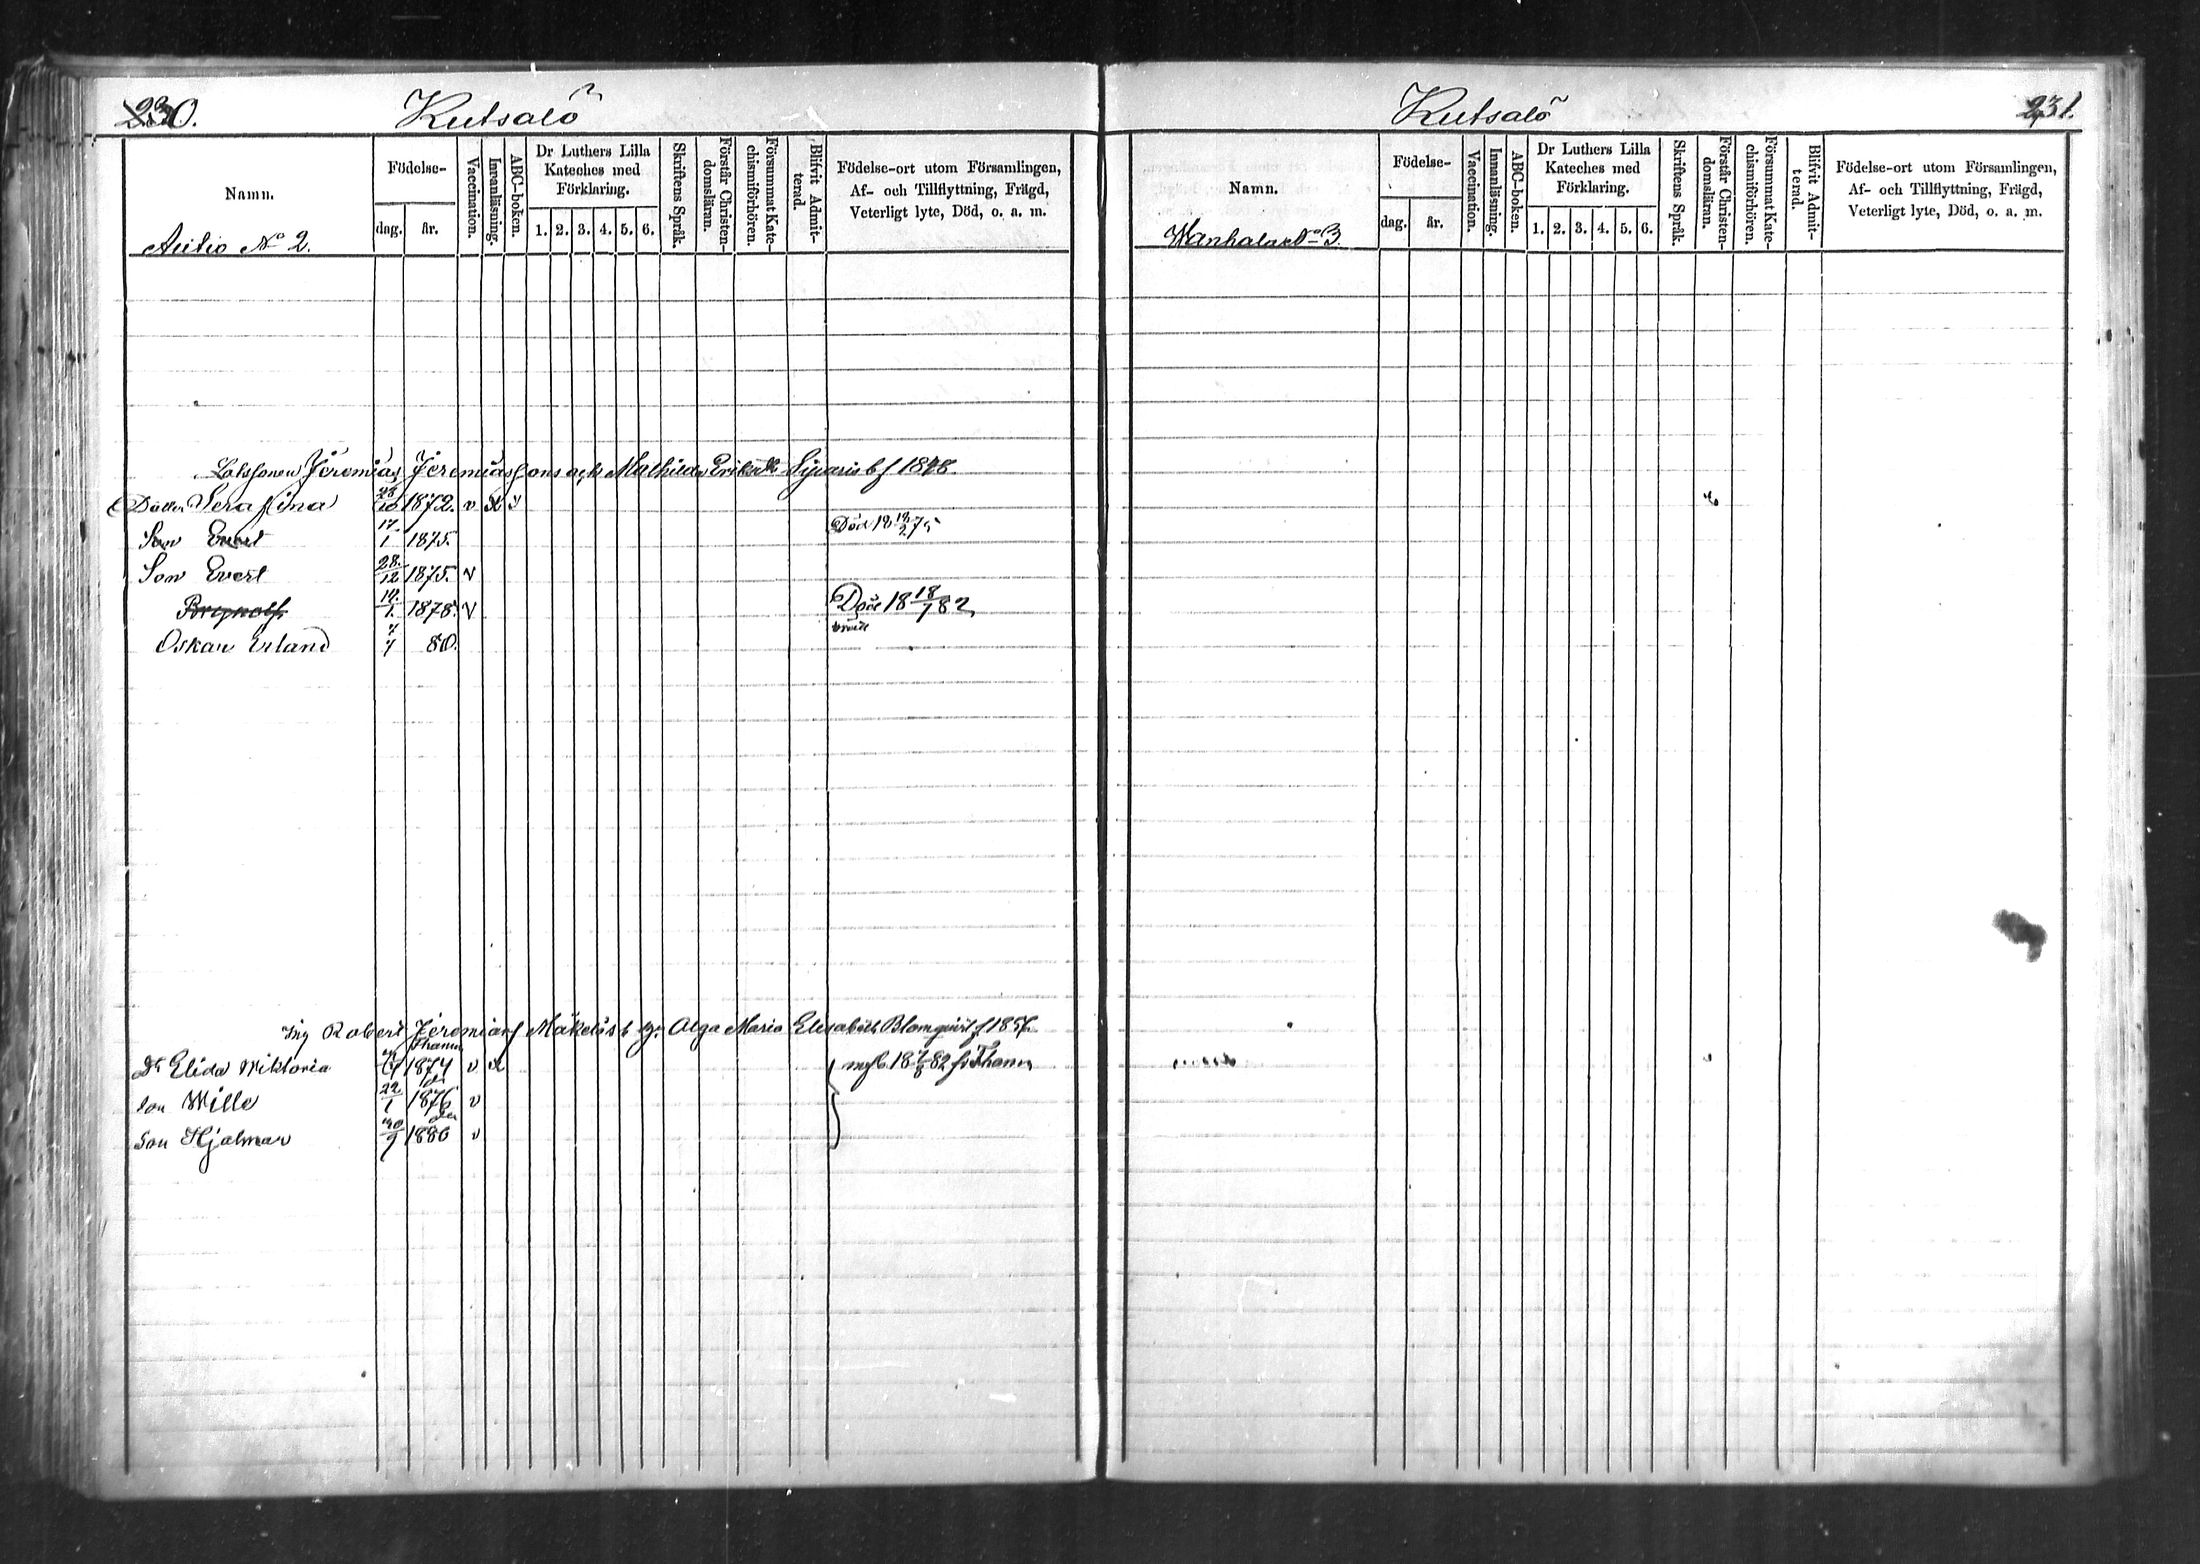 230.
Kutsalö
Namn.
Födelse-
dag.
år.
Vaccination.
Innanläsning.
ABC-boken.
Dr Luthers Lilla
Kateches med
Förklaring.
1. 2. 3. 4. 5. 6.
Skriftens Språk.
Förstår Christen-
domsläran.
Försummat Kate-
chismiförhören.
Blifvit Admit-
terad.
Födelse-ort utom Församlingen,
Af- och Tillflyttning, Frägd,
Veterligt lyte, Död, o. a. m.
Autio No 2.
Jeremias Jeremiass ons och Mathilda Erika 18
Dotter Serafina 28/10 1872. v x v
Son Evert 17/1 1875. Död 18 75
Son Evert 28./12 1875. v
1878. v Död 18 18/1 82
Oskar Erland 7/7 80.
Robert Jeremiass Mäkelä Olga Maria Elisabeth Blomqvist f 1857.
Thamn
Dr Elida Wiktoria 1874 v x 18 82 fr Thamn
Son Wille 22/1 1876 v
Son Hjalmar 30/9 1880 v
Kutsalö
231.
Namn.
Födelse-
dag.
år.
Vaccination.
Innanläsning.
ABC-boken.
Dr Luthers Lilla
Kateches med
Förklaring.
1. 2. 3. 4. 5. 6.
Skriftens Språk.
Förstår Christen-
domsläran.
Försummat Kate-
chismiförhören.
Blifvit Admit-
terad.
Födelse-ort utom Församlingen,
Af- och Tillflyttning, Frägd,
Veterligt lyte, Död, o. a. m.
No 3.